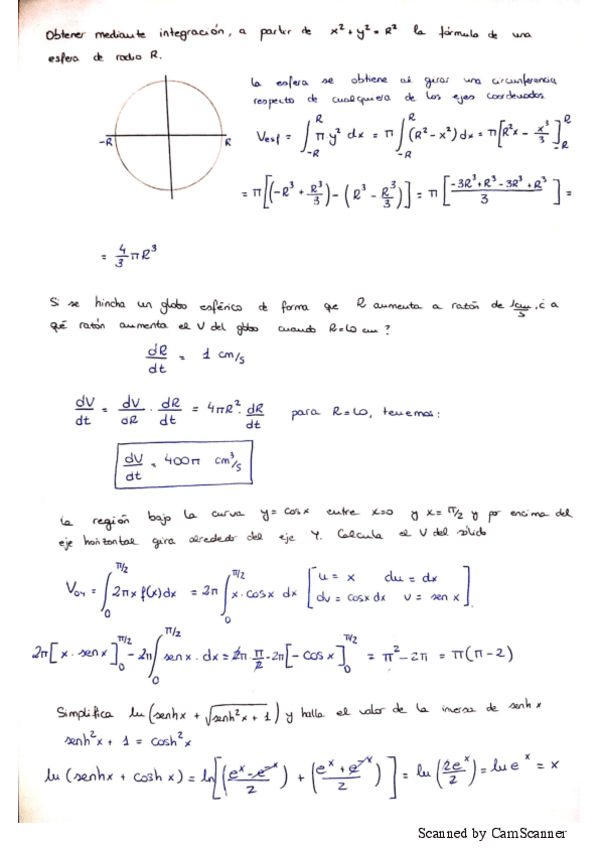 Obtener mediante integración, a partir de x² + y² = R² la fórmula de una
esfera de radio R.
La esfera se obtiene al girar una circunferencia
respecto de cualquiera de los ejes coordenados
-R R
Vesf = ∫_{-R}^{R} π y² dx = π ∫_{-R}^{R} (R² - x²) dx = π [R²x - x³/3]_{-R}^{R}
= π [(-R³ + R³/3) - (R³ - R³/3)] = π [(-3R³ + R³ - 3R³ + R³)/3] =
= 4/3 πR³
Si se hincha un globo esférico de forma que R aumenta a razón de 1cm/s, ¿ a
qué razón aumenta el V del globo cuando R=10 cm ?
dR/dt = 1 cm/s
dV/dt = dV/dR · dR/dt = 4πR² · dR/dt para R=10, tenemos:
dV/dt = 400π cm³/s
La región bajo la curva y = cos x entre x=0 y x = π/2 y por encima del
eje horizontal gira alrededor del eje Y. Calcula el V del sólido
V_{OY} = ∫_0^{π/2} 2πx f(x) dx = 2π ∫_0^{π/2} x · cos x dx [u = x du = dx
dv = cos x dx v = sen x].
2π [x · sen x]_0^{π/2} - 2π ∫_0^{π/2} sen x · dx = 2π · π/2 - 2π [- cos x]_0^{π/2} = π² - 2π = π(π - 2)
Simplifica ln (senh x + √(senh² x + 1)) y halla el valor de la inversa de senh x
senh² x + 1 = cosh² x
ln (senh x + cosh x) = ln [((e^x - e^{-x})/2) + ((e^x + e^{-x})/2)] = ln (2e^x/2) = ln e^x = x
Scanned by CamScanner